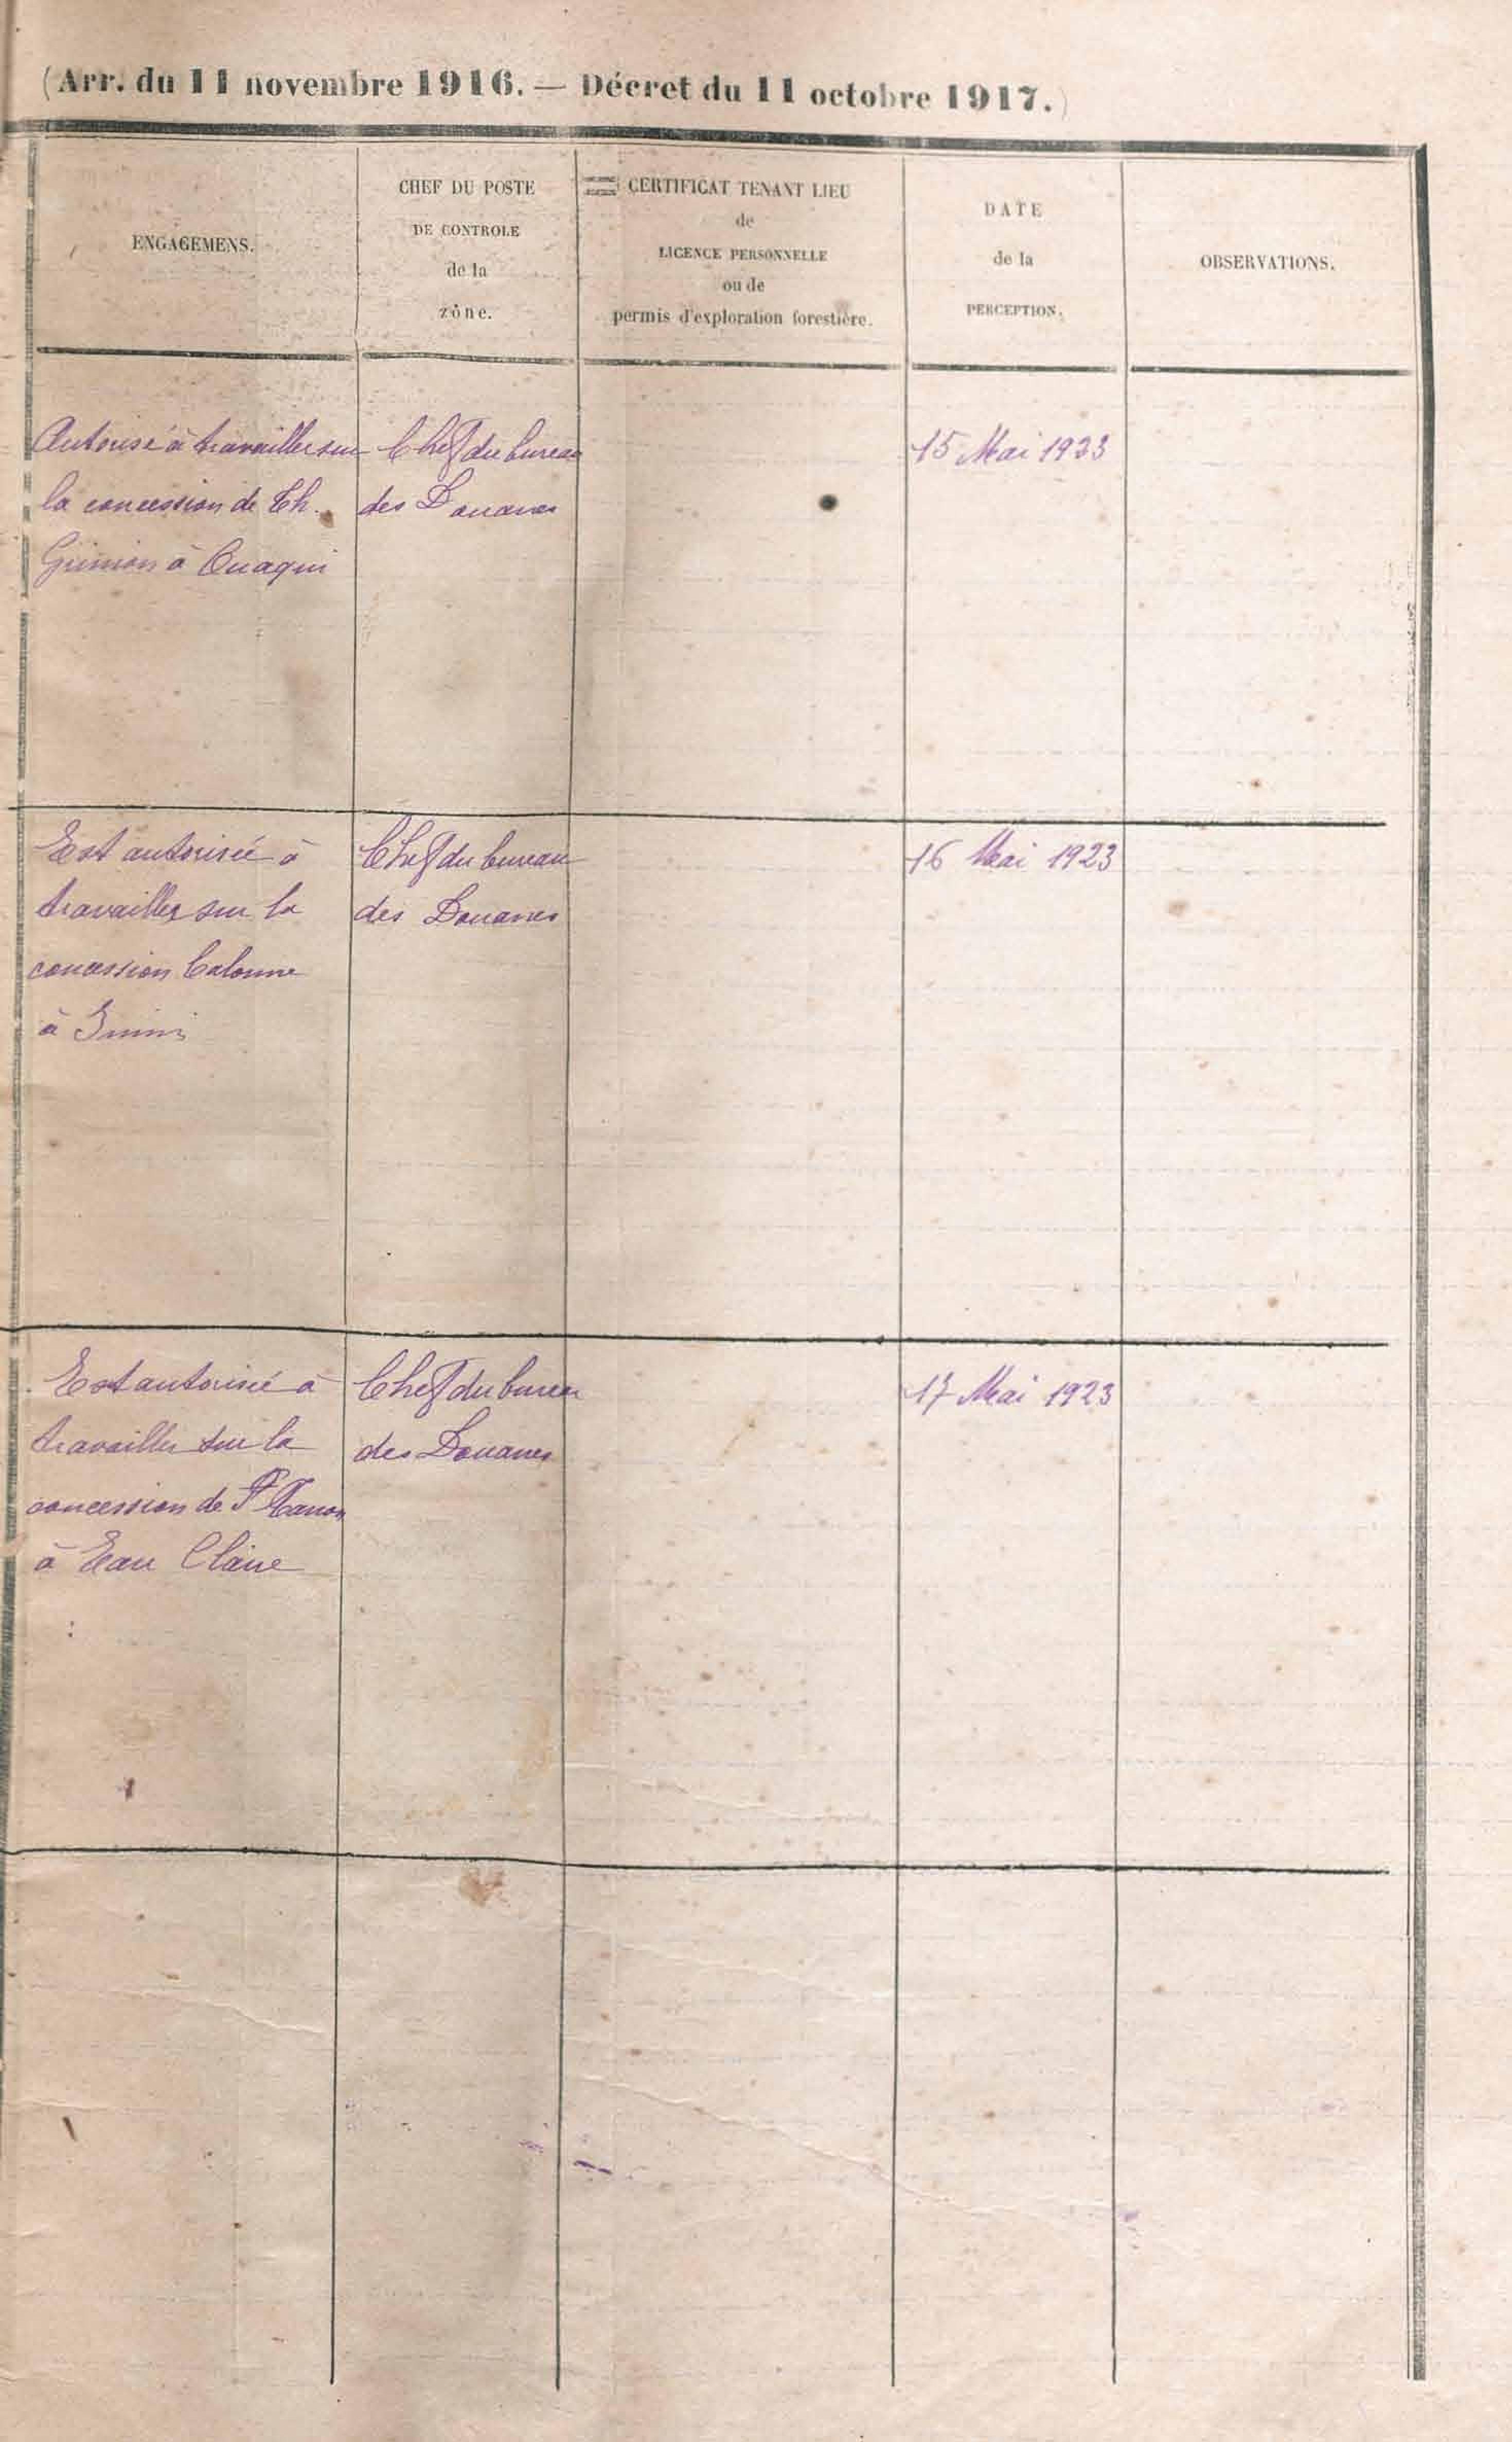 (Arr. du 11 novembre 1916. — Décret du 11 octobre 1917.)
ENGAGEMENS.
CHEF DU POSTE
DE CONTROLE
de la
zône.
CERTIFICAT TENANT LIEU
de
LICENCE PERSONNELLE
ou de
permis d'exploration forestière.
DATE
de la
PERCEPTION.
OBSERVATIONS.
Autorisé à travailler sur
la concession de Th.
à Ouaqui
Chef du bureau
des Douanes
15 Mai 1923
Est autorisée à
travailler sur la
concession Calonne
à Inini
Chef du bureau
des Douanes
16 Mai 1923
Est autorisé à
travailler sur la
concession de
à Eau Claire
Chef du bureau
des Douanes
17 Mai 1923